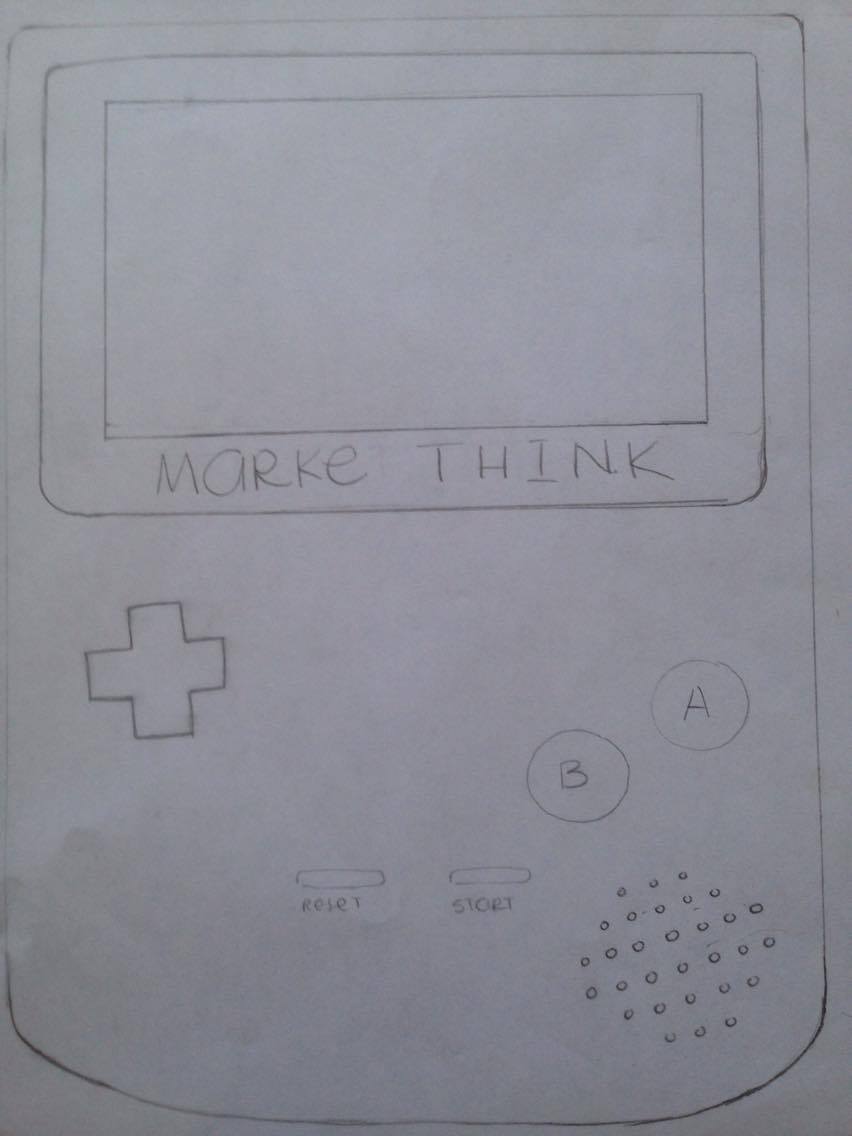 MaRKe THINK
A
B
ReseT
START